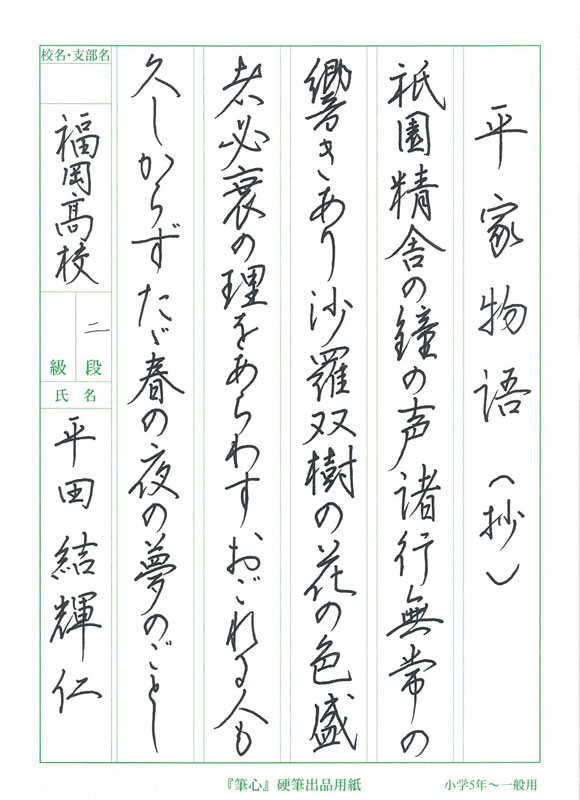 平家物語（抄）
祇園精舎の鐘の声諸行無常の
響きあり沙羅双樹の花の色盛
者必衰の理をあらわすおごれる人も
久しからずたゞ春の夜の夢のごとし
校名・支部名
福岡高校
二
段
級
氏名
平田結輝仁
『筆心』硬筆出品用紙
小学5年〜一般用